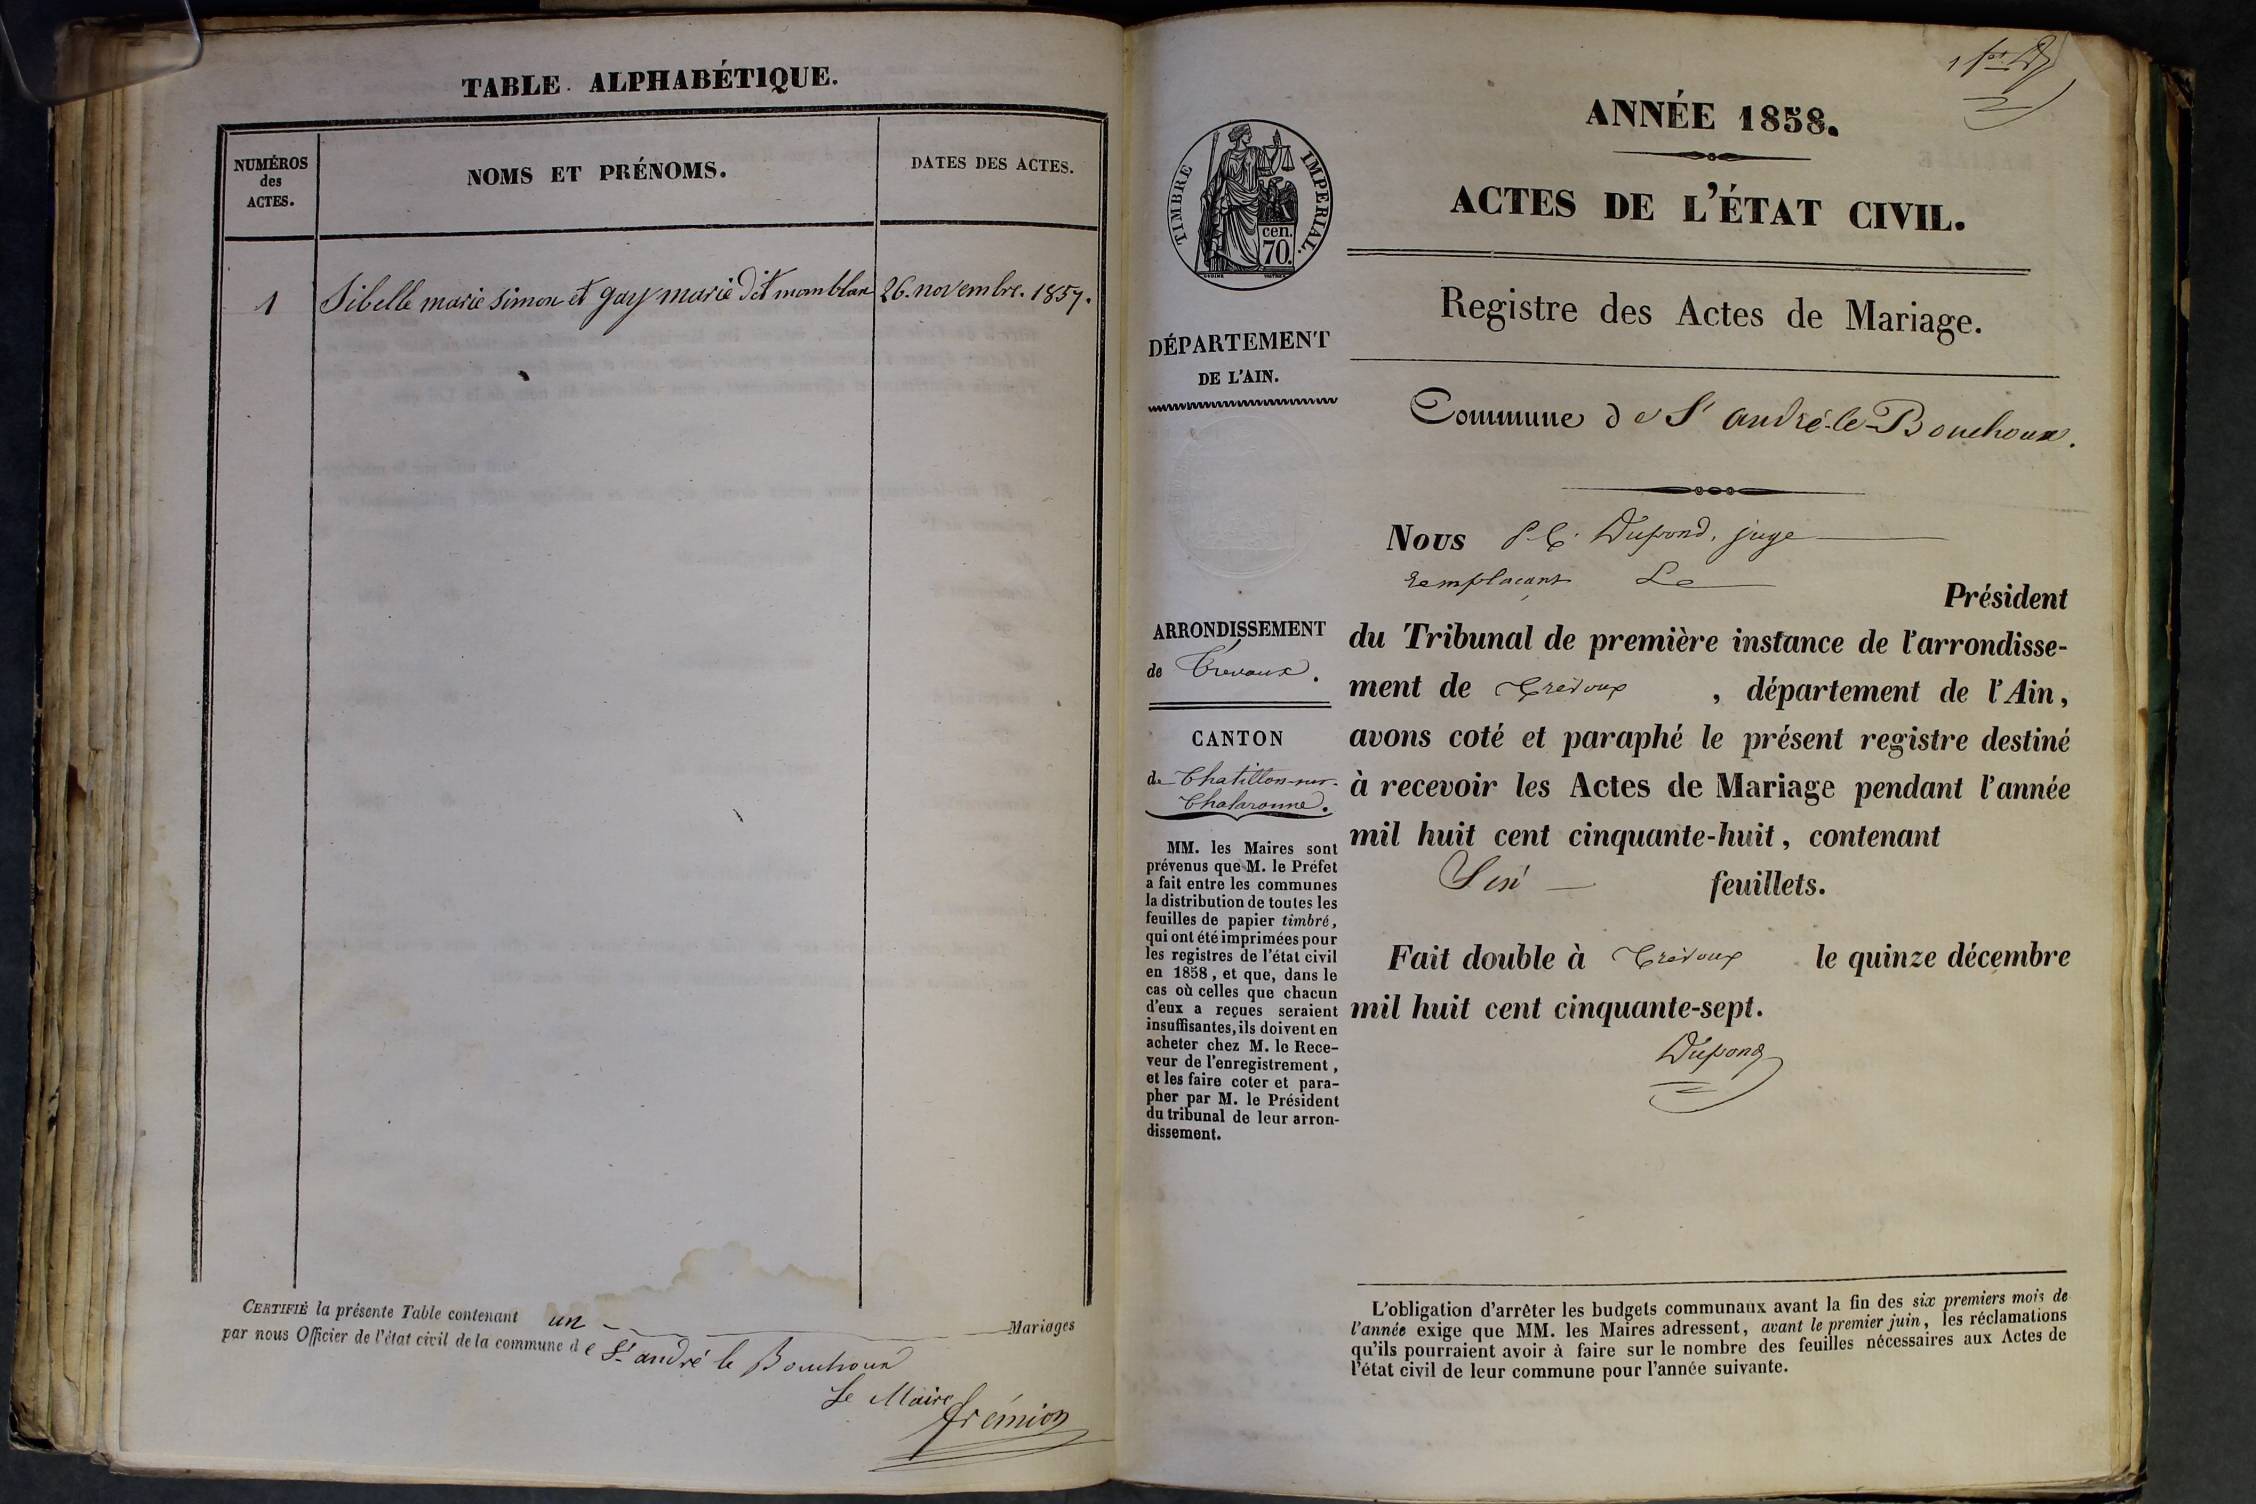 TABLE ALPHABÉTIQUE.
NUMÉROS
des
ACTES.
NOMS ET PRÉNOMS.
DATES DES ACTES.
1 Sibelle marie simon et gay marie dit momblan 26. novembre. 1857.
CERTIFIÉ la présente Table contenant un Mariages
par nous Officier de l'état civil de la commune de St andré le Bouchoux
Le Maire
frémion
ANNÉE 1858.
ACTES DE L'ÉTAT CIVIL.
TIMBRE IMPERIAL.
cen.
70.
Registre des Actes de Mariage.
DÉPARTEMENT
DE L'AIN.
Commune de St andré-le-Bouchoux.
ARRONDISSEMENT
de Trevoux.
CANTON
de Chatillon-sur-
Chalaronne.
MM. les Maires sont
prévenus que M. le Préfet
a fait entre les communes
la distribution de toutes les
feuilles de papier timbré,
qui ont été imprimées pour
les registres de l'état civil
en 1858, et que, dans le
cas où celles que chacun
d'eux a reçues seraient
insuffisantes, ils doivent en
acheter chez M. le Rece-
veur de l'enregistrement,
et les faire coter et para-
pher par M. le Président
du tribunal de leur arron-
dissement.
Nous Dupond, juge
remplacant Le
Président
du Tribunal de première instance de l'arrondisse-
ment de Trévoux, département de l'Ain,
avons coté et paraphé le présent registre destiné
à recevoir les Actes de Mariage pendant l'année
mil huit cent cinquante-huit, contenant
feuillets.
Fait double à Trévoux le quinze décembre
mil huit cent cinquante-sept.
Dupond
L'obligation d'arrêter les budgets communaux avant la fin des six premiers mois de
l'année exige que MM. les Maires adressent, avant le premier juin, les réclamations
qu'ils pourraient avoir à faire sur le nombre des feuilles nécessaires aux Actes de
l'état civil de leur commune pour l'année suivante.